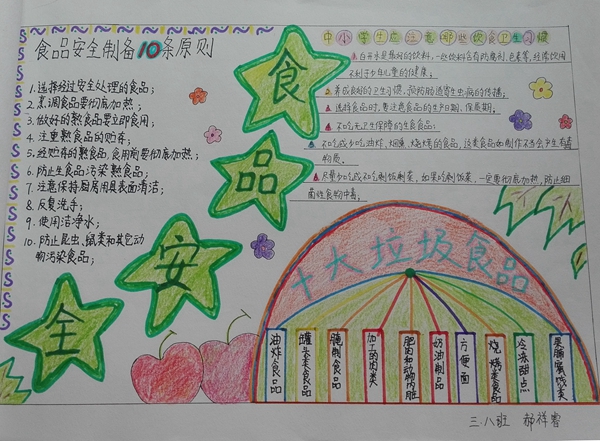 食品安全制备10条原则
1.选择经过安全处理的食品;
2.烹调食品要彻底加热;
3.做好的熟食品要立即食用;
4.注重熟食品的贮存;
5.经贮存的熟食品,食用前要彻底加热;
6.防止生食品污染熟食品;
7.注意保持厨房用具表面清洁;
8.反复洗手;
9.使用洁净水;
10.防止昆虫、鼠类和其它动
物污染食品;
食
品
安
全
中小学生应注意哪些饮食卫生习惯
白开水是最好的饮料,一些饮料含有防腐剂、色素等,经常饮用
不利于少年儿童的健康;
养成良好的卫生习惯,预防肠道寄生虫病的传播;
选择食品时,要注意食品的生产日期、保质期;
不吃无卫生保障的生食食品;
不吃或少吃油炸、烟熏、烧烤的食品,这类食品如制作不当会产生有毒
物质。
尽量少吃或不吃剩饭剩菜,如果吃剩饭菜,一定要彻底加热,防止细
菌性食物中毒。
十大垃圾食品
油炸食品
罐头类食品
腌制食品
加工的肉类
肥肉和动物内脏
奶油制品
方便面
烧烤类食品
冷冻甜点
果脯蜜饯类
三.八班 郝祥睿